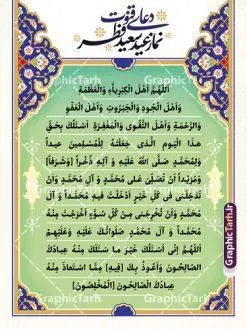 دعای قنوت
نماز عید سعید فطر
اَللّهُمَّ اَهْلَ الْكِبْرِیاَّءِ وَالْعَظَمَةِ
وَاَهْلَ الْجُودِ وَالْجَبَرُوتِ وَاَهْلَ الْعَفْوِ
وَالرَّحْمَةِ وَاَهْلَ التَّقْوى وَالْمَغْفِرَةِ اَسْئَلُكَ بِحَقِّ
هذَا الْیَومِ الَّذى جَعَلْتَهُ لِلْمُسْلِمینَ عیداً
وَلِمُحَمَّدٍ صَلَّى اللّهُ عَلَیْهِ وَ آلِهِ ذُخْراً [وَشَرَفاً]
وَمَزِیْداً اَنْ تُصَلِّىَ عَلى مُحَمَّدٍ وَ آلِ مُحَمَّدٍ وَاَنْ
تُدْخِلَنى فى كُلِّ خَیْرٍ اَدْخَلْتَ فیهِ مُحَمَّداً وَ آلَ
مُحَمَّدٍ وَاَنْ تُخْرِجَنى مِنْ كُلِّ سُوَّءٍ اَخْرَجْتَ مِنْهُ
مُحَمَّداً وَ آلَ مُحَمَّدٍ صَلَواتُكَ عَلَیْهِ وَعَلَیْهِمْ
اَللّهُمَّ اِنّى اَسْئَلُكَ خَیْرَ ما سَئَلَكَ مِنْهُ عِبادُكَ
الصّالِحُونَ وَاَعُوذُ بِكَ [فیهِ] مِمَّا اسْتَعاذَ مِنْهُ
عِبادُكَ الصّالِحُونَ [الْمُخْلِصُونَ]
GraphicTarh
GraphicTarh
GraphicTarh
GraphicTarh
GraphicTarh.ir